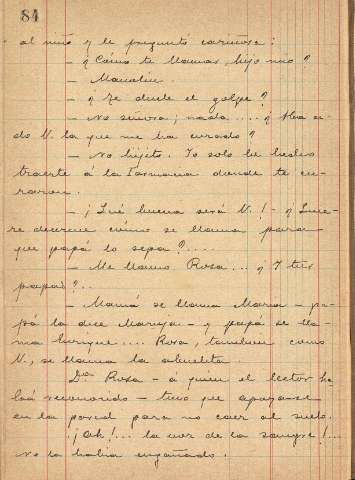 84
al niño y le preguntó cariñosa:
— ¿Cómo te llamas, hijo mio?
— Manolín.
— ¿Te duele el golpe?
— No señora; nada.... ¿Ha si-
do V. la que me ha curado?
— No hijito. Yo solo he hecho
traerte á la Farmacia donde te cu-
raron.
— ¡Qué buena será V.! — ¿Quie-
re decirme cómo se llama para
que papá lo sepa?....
— Me llamo Rosa... ¿Y tus
papas?..
— Mamá se llama María — pa-
pá la dice Maruja — y papá se lla-
ma Enrique.... Rosa, tambien como
V., se llama la abuelita.
Dª Rosa — á quien el lector ha-
brá reconocido — tuvo que apoyarse
en la pared para no caer al suelo.
¡Ah!... la voz de la sangre!...
no la había engañado.